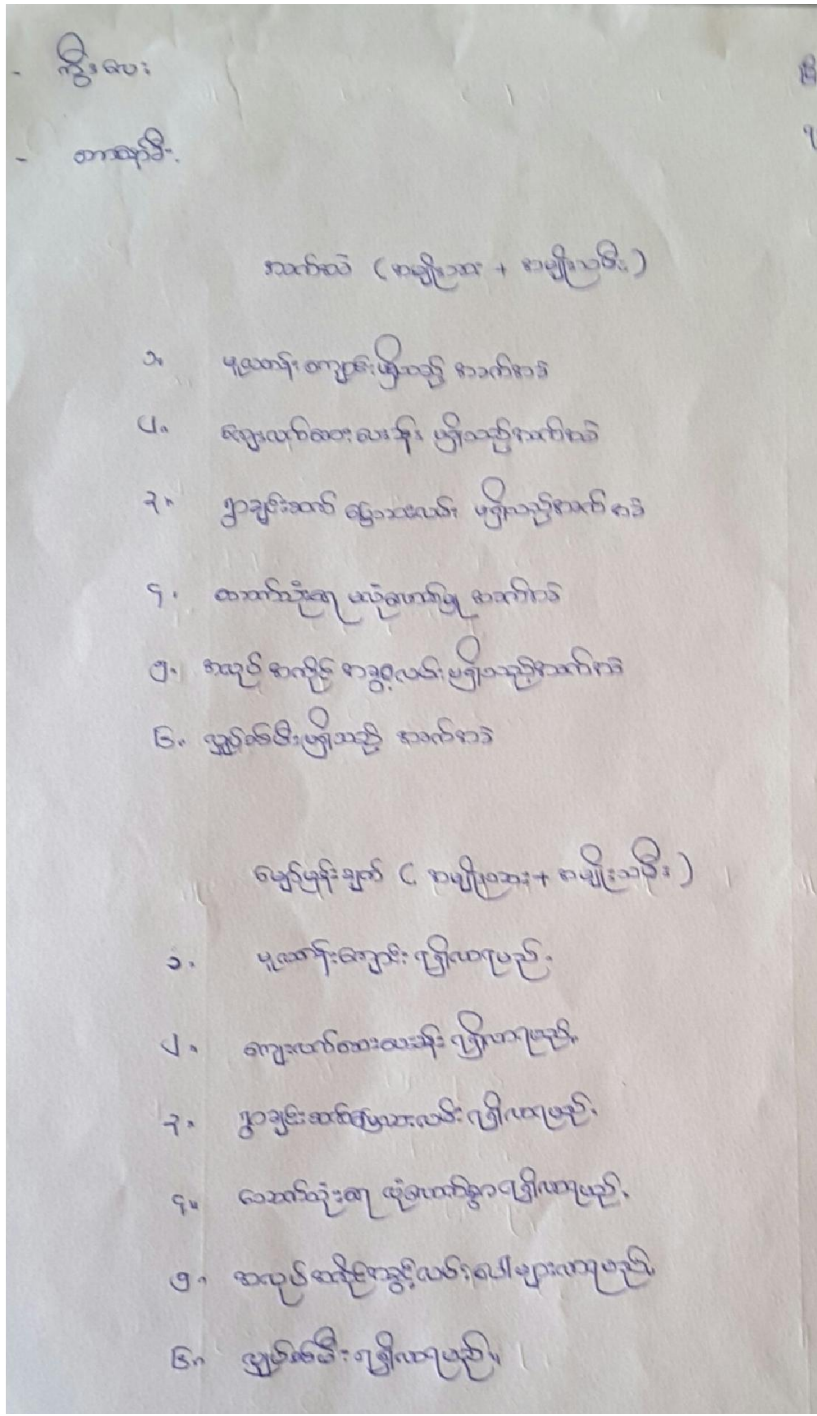 - ကွီးလေး
- တာလော်မီး
အခက်အခဲ ( အမျိုးသား + အမျိုးသမီး )
၁။ မူလတန်း ကျောင်းမရှိသည့် အခက်အခဲ
၂။ ကျေးလက်ဆေးပေးခန်း မရှိသည့်အခက်အခဲ
၃။ ရွာချင်းဆက် မြေသားလမ်း မရှိသည့်အခက်အခဲ
၄။ သောက်သုံးရေ မလုံလောက်မှု အခက်အခဲ
၅။ အလုပ် အကိုင် အခွင့်လမ်းမရှိသည့်အခက်အခဲ
၆။ လျှပ်စစ်မီးမရှိသည့် အခက်အခဲ
မျှော်မှန်းချက် ( အမျိုးသား + အမျိုးသမီး )
၁။ မူလတန်းကျောင်း ရရှိလာရမည်။
၂။ ကျေးလက်ဆေးပေးခန်း ရရှိလာရမည်။
၃။ ရွာချင်းဆက်မြေသားလမ်း ရရှိလာရမည်။
၄။ သောက်သုံးရေ လုံလောက်စွာ ရရှိလာရမည်။
၅။ အလုပ် အကိုင်အခွင့်လမ်း ပေါများလာရမည်။
၆။ လျှပ်စစ်မီး ရရှိလာရမည်။